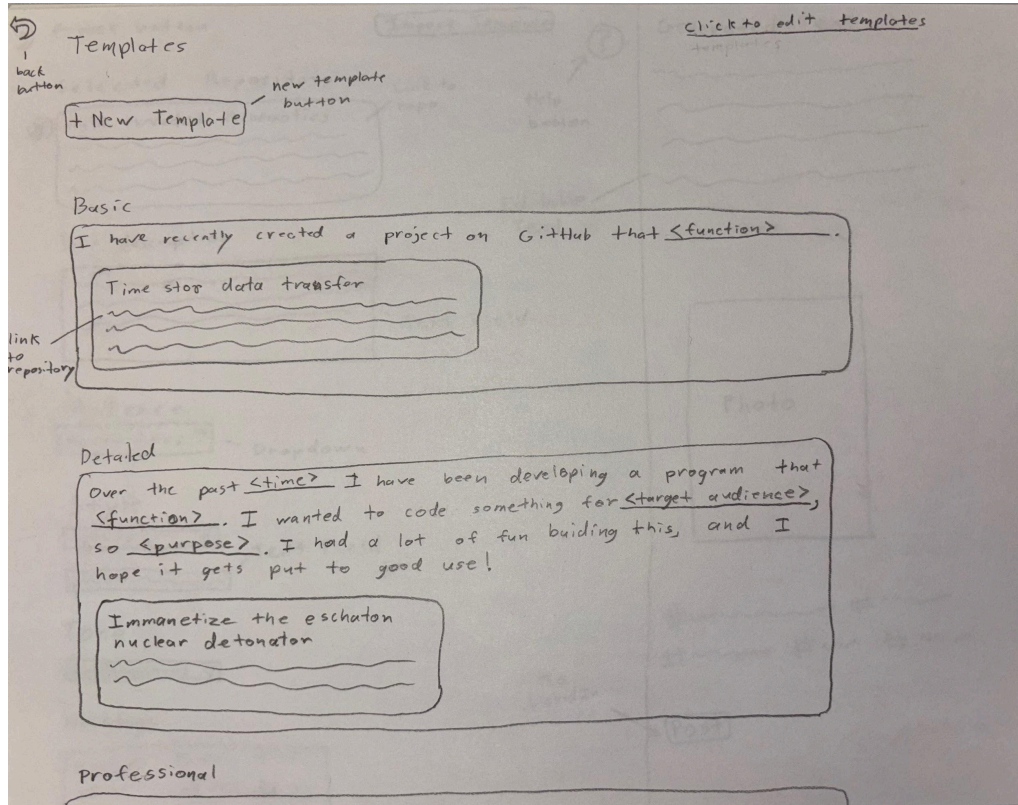 click to edit templates
Templates
back
button
new template
button
+ New Template
Basic
I have recently created a project on GitHub that <function>.
Time stor data transfer
link
to
repository
Detailed
Over the past <time> I have been developing a program that
<function>. I wanted to code something for <target audience>,
so <purpose>. I had a lot of fun buiding this, and I
hope it gets put to good use!
Immanetize the eschaton
nuclear detonator
Professional
templates
Photo
Dropdown